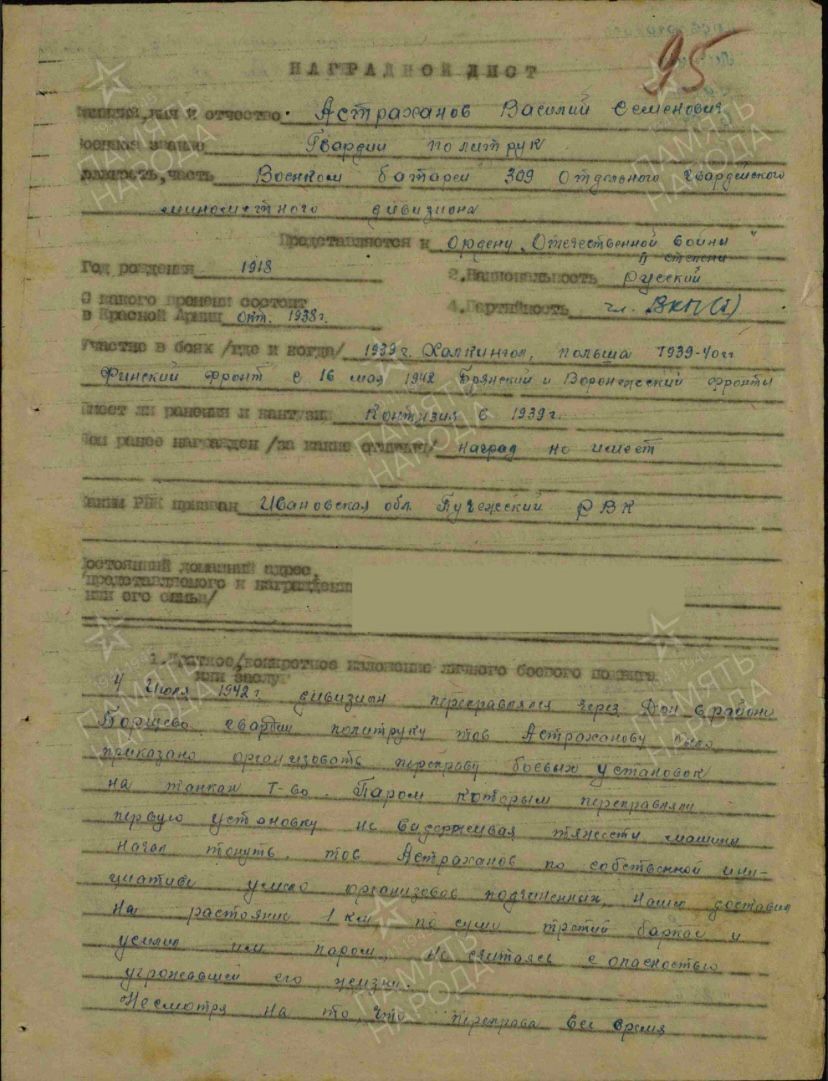 95
НАГРАДНОЙ ЛИСТ
Фамилия, имя и отчество Астраханов Василий Семенович
Военное звание Гвардии политрук
Должность, часть Военком батареи 309 Отдельного Гвардейского
минометного дивизиона
Представляется к Ордену "Отечественной войны"
II степени
Год рождения 1918 2. Национальность русский
С какого времени состоит
в Красной Армии окт. 1938г. 4. Партийность чл. ВКП(б)
Участие в боях /где и когда/ 1939г. Халкингол, польша 1939-40гг
Финский фронт с 16 мая 1942 Брянский и Воронежский фронты
Имеет ли ранения и контузии Контузия в 1939г.
Чем ранее награжден /за какие отличия/ наград не имеет
Каким РВК призван Ивановская обл. Пучежский РВК
Постоянный домашний адрес,
/представляемого к награждению
или его семьи/
1. Краткое, конкретное изложение личного боевого подвига
или заслуг
4 Июля 1942г. дивизион переправлялся через Дон в районе
Борщево. гвардии политруку тов Астраханову было
приказано организовать переправу боевых установок
на танках Т-60. Паром которым переправляли
первую установку не видерживая тяжести машины
начал тонуть. тов Астраханов по собственной ини-
циативе умело организовав подчиненных, нашел доставил
на растояние 1 км, по суши третий баркас и
усилил им паром, не считаясь с опасностью
угрожавшей его жизни.
Несмотря на то, что переправа все время
ПАМЯТЬ НАРОДА
ПАМЯТЬ НАРОДА
ПАМЯТЬ НАРОДА
ПАМЯТЬ НАРОДА
ПАМЯТЬ НАРОДА
ПАМЯТЬ НАРОДА